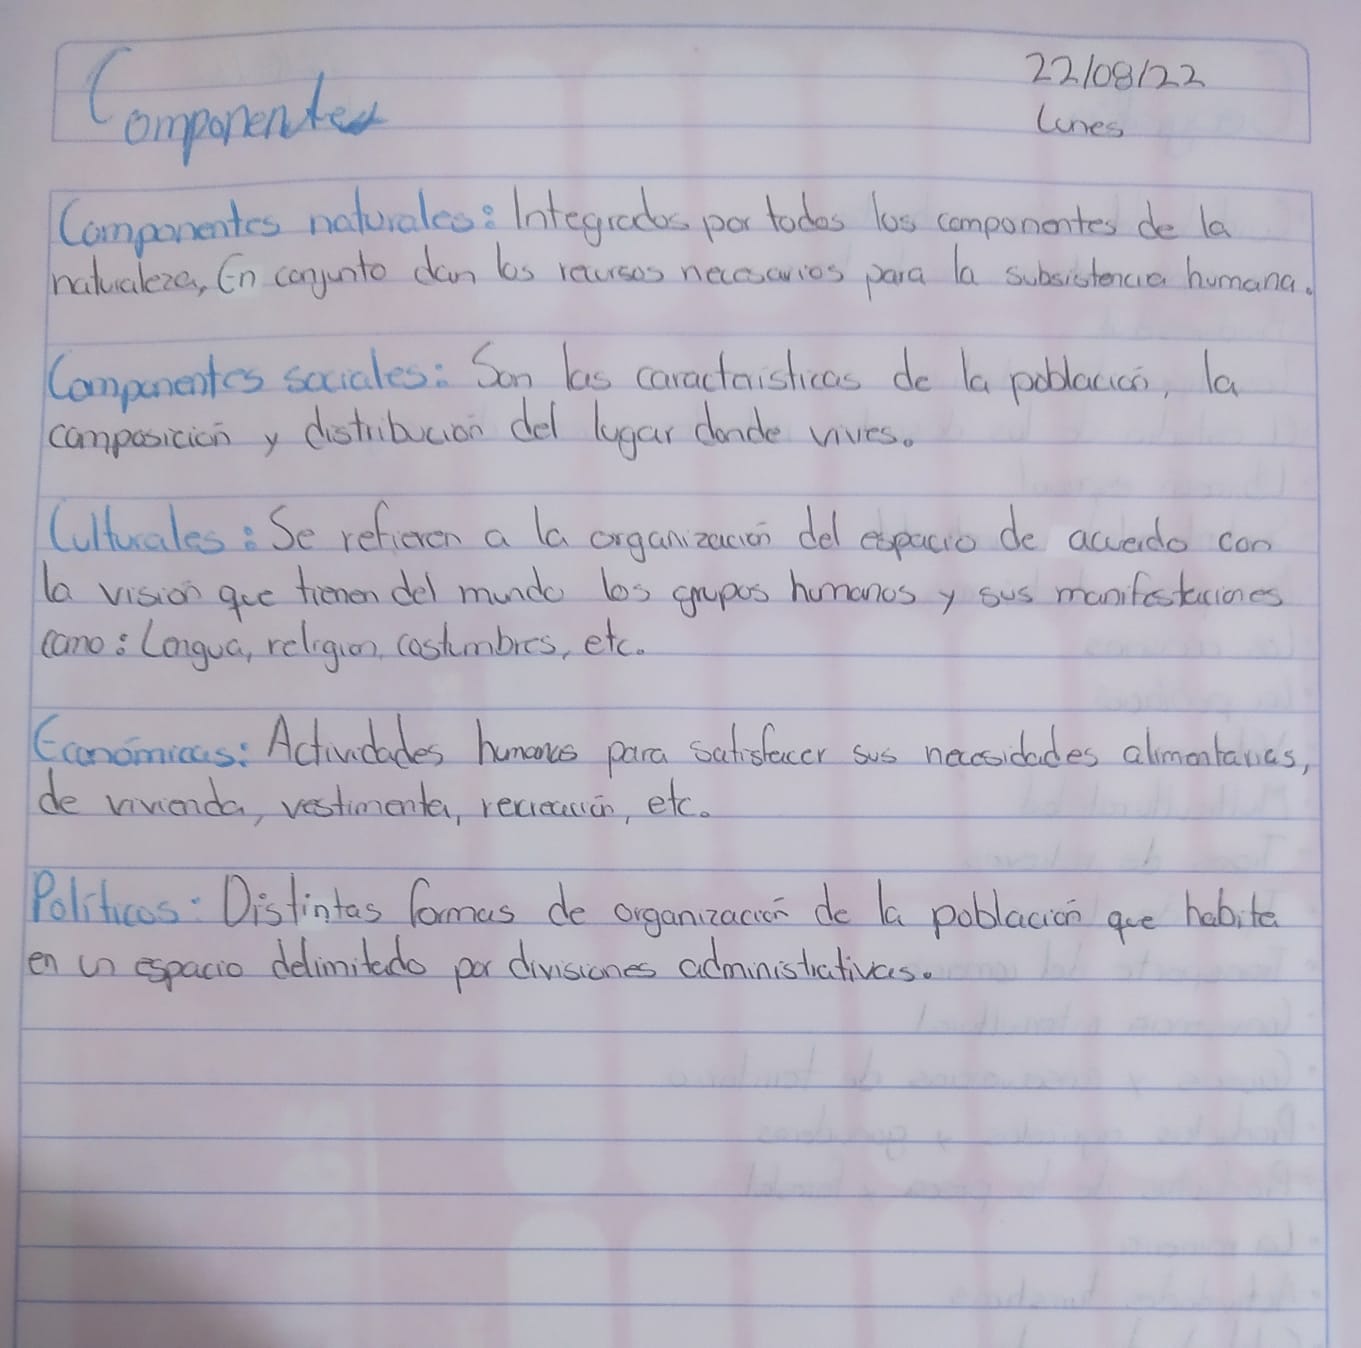 Componentes
22/08/22
Lunes
Componentes naturales: Integrados por todos los componentes de la
naturaleza, En conjunto dan los recursos necesarios para la subsistencia humana.
Componentes sociales: Son las características de la población, la
composición y distribución del lugar donde vives.
Culturales: Se refieren a la organización del espacio de acuerdo con
la visión que tienen del mundo los grupos humanos y sus manifestaciones
como: Lengua, religión, costumbres, etc.
Económicas: Actividades humanas para satisfacer sus necesidades alimentarias,
de vivienda, vestimenta, recreación, etc.
Políticos: Distintas formas de organización de la población que habita
en un espacio delimitado por divisiones administrativas.